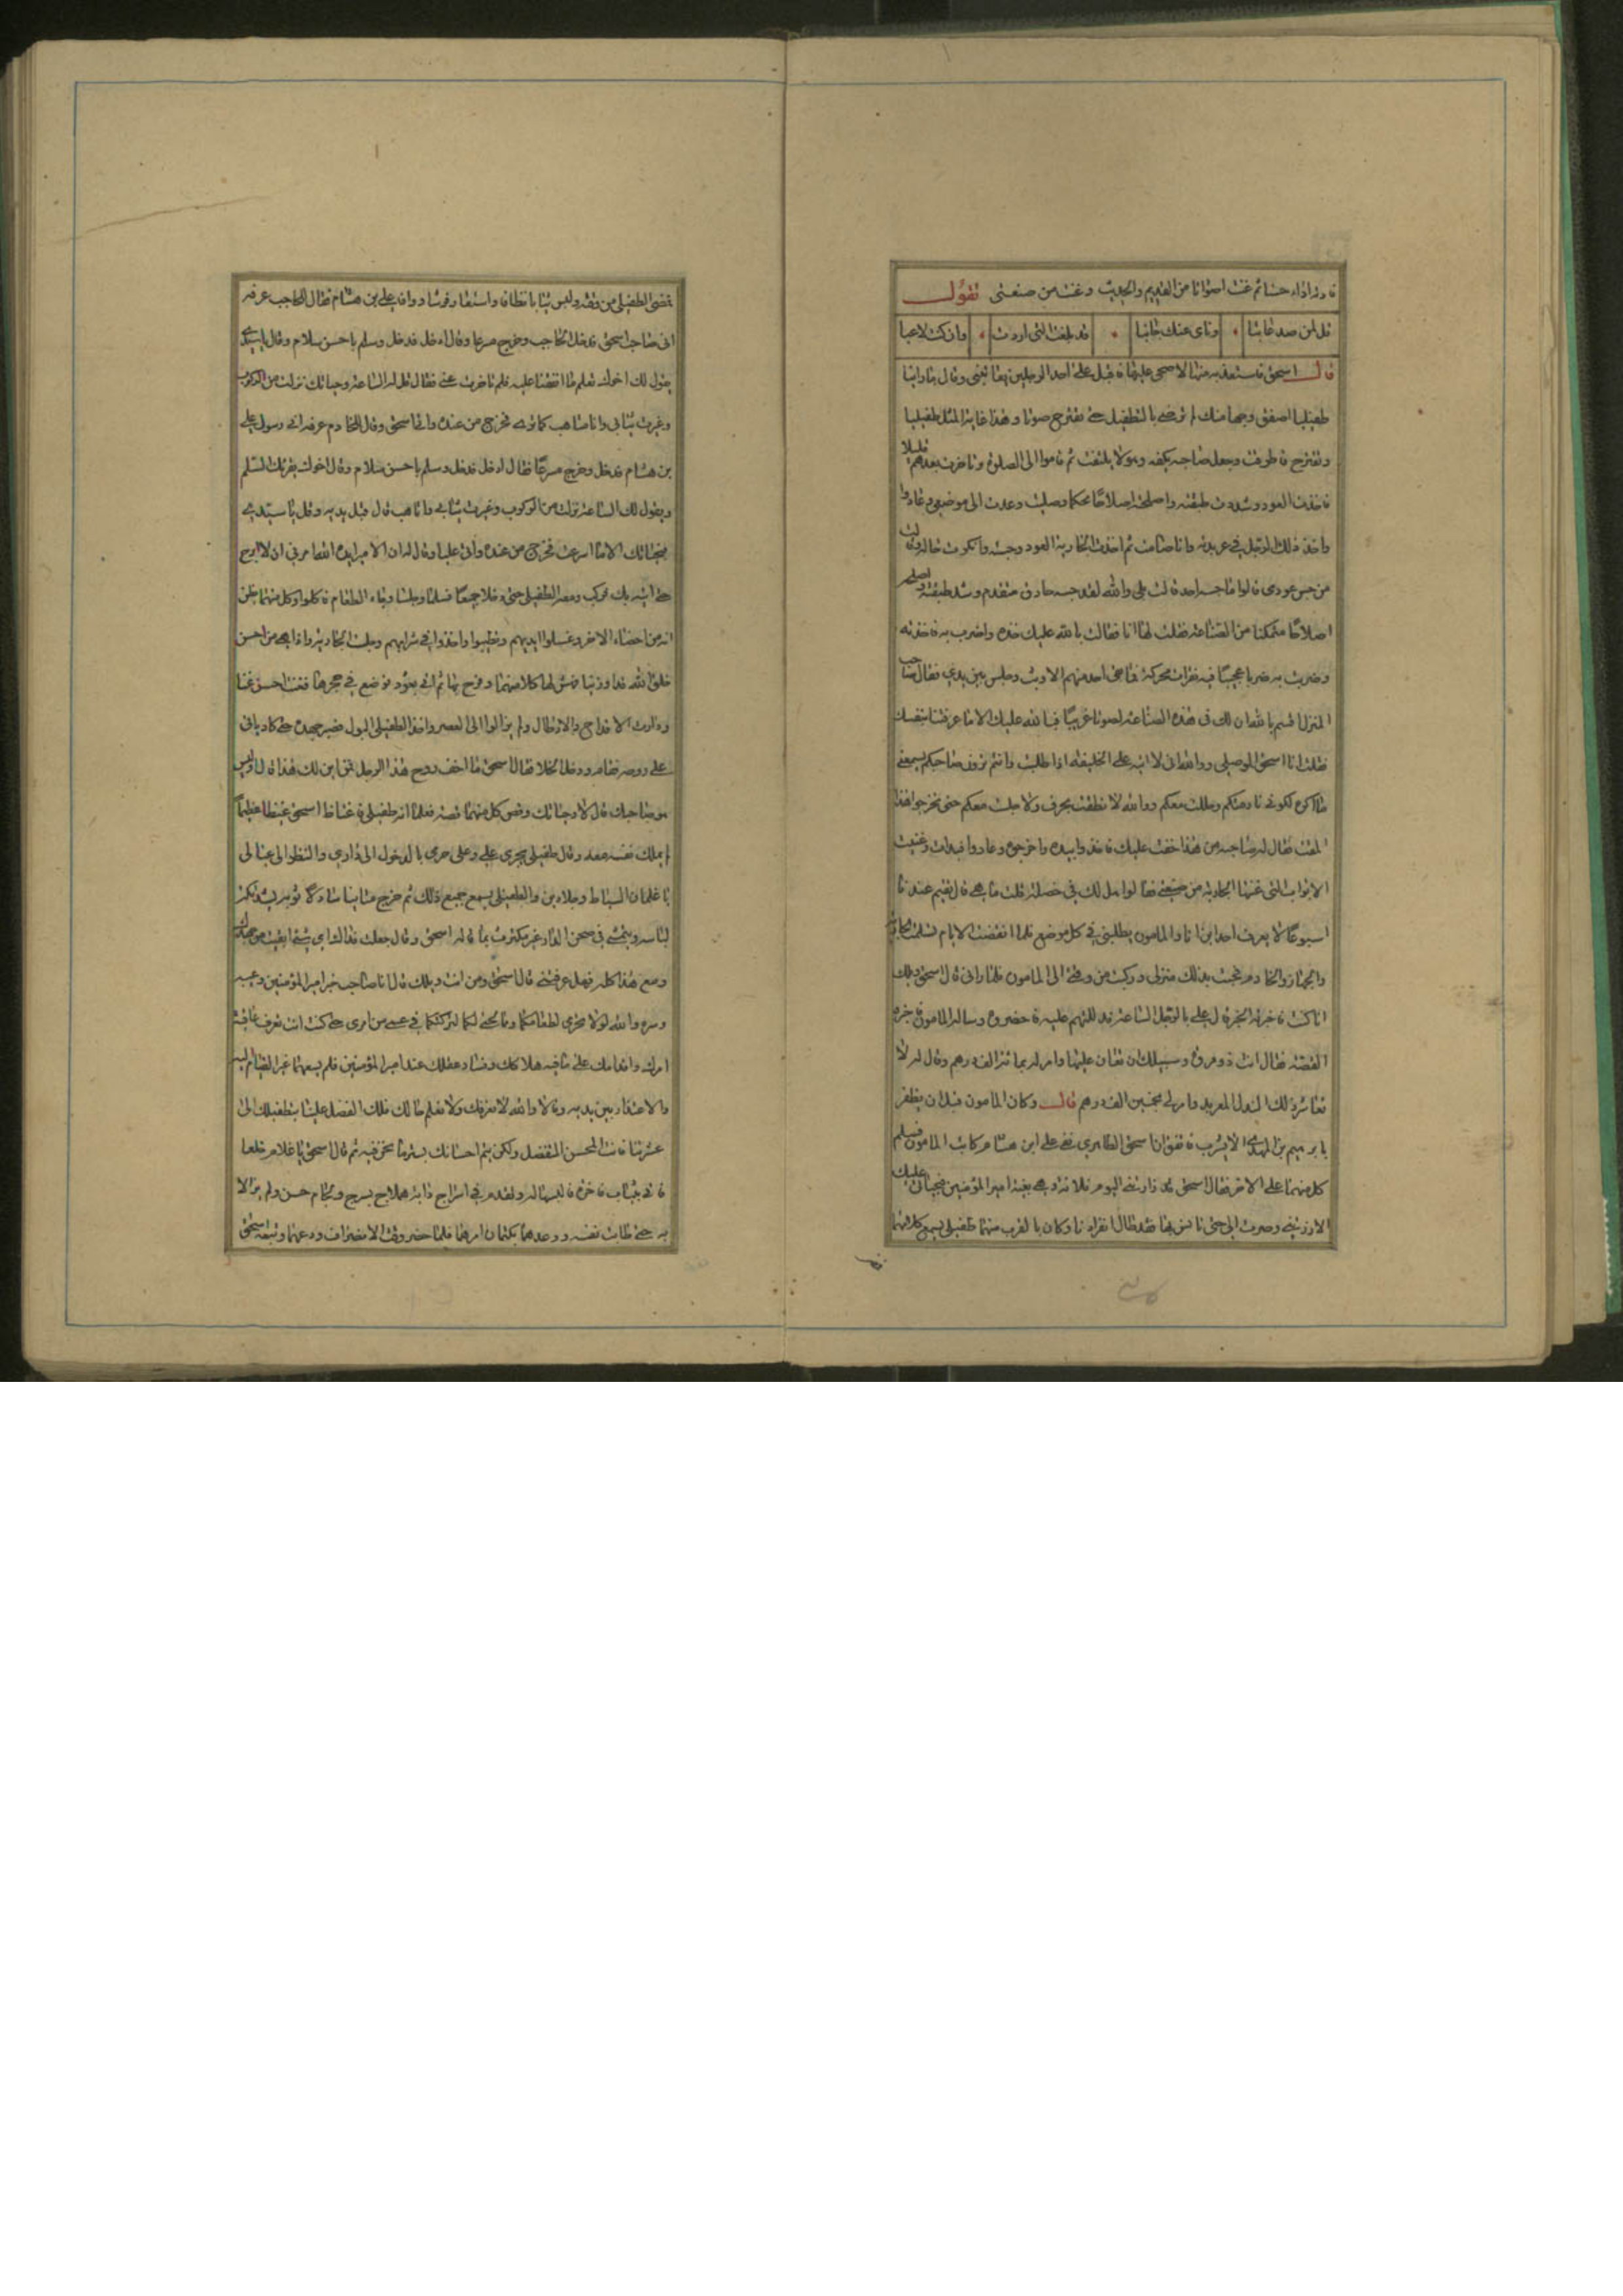 فادار اداء حسنا ثم غنت اصواتا من القديم والحديث وغنت من صنعتى تقول
قل لمن صد عاتبا ونأى عنك جانبا قد بلغت الذى اردت وان كنت لاعبا
قال اسحق فاستعدته منها لاصحح عليها فاقبل على احد الرجلين يغنى وقال ما رأينا
طفيليا اصفق وجها منك لم ترض بالتطفيل حتى تقترح صوتا وهذا غاية المثل طفيليا
وتقترح فاطرقت وجعل صاحبه يكفه وهو لا يلتفت ثم قاموا الى الصلوة وتأخرت بعدهم قليلا
فاخذت العود وشددت طبقته واصلحته اصلاحا محكما وصليت وعدت الى موضعى وعادوا
واخذ ذلك الرجل فى عربدته وانا صامت ثم اخذت الجارية العود وجسته وانكرت حاله وقالت
من جس عودى قالوا ما جسه احد قالت بلى والله لقد جسه حاذق متقدم وشد طبقته واصلحه
اصلاحا متمكنا من الصناعة فقلت لها انا فقالت بالله عليك خذه واضرب به فاخذته
وضربت به ضربا عجيبا فيه نقرات محركة فما بقى احد منهم الا وثب وجلس بين يدى فقال صاحب
المنزل قسم بالله ان لك فى هذه الصناعة لصوتا غريبا فبالله عليك الا ما عرفتنا بنفسك
فقلت انا اسحق الموصلى ووالله انى لا اتيه على الخليفة اذا طلبت وانتم ترون صاحبكم يسمعنى
ما اكره لكونى نادمتكم وجلست معكم ووالله لا نطقت بحرف ولا جلست معكم حتى تخرجوا هذا
المقت فقال له صاحبه من هذا خفت عليك فاخذوا بيده واخرجوه وعادوا فبدأت وغنيت
الابيات التى غنتها الجارية من صنعتى فقالوا هل لك فى خصلة قلت ما هى قال تقيم عندنا
اسبوعا لا يعرف احد اين انا والمامون يطلبنى فى كل موضع فلما انقضت الايام تسلمت الجارية
والحمار والخادم فجئت بذلك منزلى وركبت من وقتى الى المامون فلما رآنى قال اسحق ويلك
اين كنت فاخبرته الخبر قال على بالرجل الساعة فدللتهم عليه فاحضروه وساله المامون فاخبره
القصة فقال انت ذو مروة وسبيلك ان تعان عليها وامر له بمائة الف درهم وقال له لا
تعاشر ذلك النذل المعربد وامر لى بخمسين الف درهم قال وكان المامون قبل ان يظفر
بابرهيم بن المهدى لا يشرب فاتفق ان اسحق الظاهرى لقى على ابن هشام كاتب المامون فسلم
كل منهما على الاخر فقال اسحق قد زارتنى اليوم فلانة وهى بغية امير المؤمنين فبحياتى عليك
الا زرتنى وصرت الى حتى نأنس بها فقد طال انفرادنا وكان بالقرب منهما طفيلى يسمع كلامهما
فمضى الطفيلى من وقته ولبس ثيابا نظافا واستعار فرسا ووافى على بن هشام فقال للحاجب عرفه
انى صاحب اسحق فدخل الحاجب وخرج مسرعا وقال ادخل فدخل وسلم باحسن سلام وقال يا سيدى
يقول لك اخوك تعلم ما اتفقنا عليه فلم تاخرت عنى فقال قل له الساعة وحياتك نزلت من الركوب
وغيرت ثيابى وانا متاهب كما ترى فخرج من عنده واتى اسحق وقال للخادم عرفه انى رسول على
بن هشام فدخل وخرج مسرعا فقال ادخل فدخل وسلم باحسن سلام وقال اخوك يقرئك السلم
ويقول لك الساعة نزلت من الركوب وغيرت ثيابى وتاهبت قال قبل يديه وقل يا سيدى
بحياتك الا ما اسرعت فخرج من عنده واتى عليا وقال له ان الامير ايده الله امرنى ان لا ابرح
حتى اتيه بك فركب ومعه الطفيلى حتى دخلا جميعا فسلما وجلسا وجاء الطعام فاكلوا وكل منهما يظن
انه من اخصاء الاخر وغسلوا ايديهم وتطيبوا واخذوا فى شرابهم وجلست الجارية واذا هى من احسن
خلق الله قدا وزيا فهش لها كلا منهما وفرح بها ثم اتى بعود فوضع فى حجرها فغنت احسن غنا
ودارت الاقداح والارطال ولم يزالوا الى العصر واخذ الطفيلى البول فصبر جهده حتى كاد ياتى
على روحه فقام ودخل الخلا فقال اسحق ما اخف روح هذا الرجل فمن اين لك هذا قال اوليس
هو صاحبك قال لا وحياتك وقص كل منهما قصته فعلما انه طفيلى فاغتاظ اسحق غيظا عظيما
لم يملك نفسه معه وقال طفيلى يجرى على وعلى حرمى بالدخول الى دارى والنظر الى عيالى
يا غلمان السياط وجلادين والطفيلى يسمع جميع ذلك ثم خرج متمايسا شادا ثوبه يشد تكة
لباسه ويمشى فى صحن الدار غير مكترث بما قاله اسحق وقال جعلت فداك اى شئ ابقيت من جهدك
ومع هذا كله فهل عرفتنى قال اسحق ومن انت ويلك قال انا صاحب خبر امير المؤمنين وعيبة
وسره والله لولا تحرى لطعامكما وممالحتى لكما لتركتكما فى عمى من امرى حتى كنت انت تعرف عاقبة
امرك واقدامك على ما فيه هلاكك وفساد عقلك عند امير المؤمنين فلم يسعهما غير القيام اليه
والاعتذار بين يديه وقالا والله لا نعرفك ولا نعلم حالك فلك الفضل علينا بتطفيلك الى
عشرتنا فانت المحسن المتفضل ولكن تتم احسانك بستر ما نحن فيه ثم قال اسحق يا غلام خلعا
فاتى بثياب فاخرة فالبسها له وتقدم فى اسراج دابة هملاج بسرج ولجام حسن ولم يزالا
به حتى طابت نفسه ووعدهما بكتمان امرهما فلما حضر وقت الانصراف ودعهما وتبعه اسحق